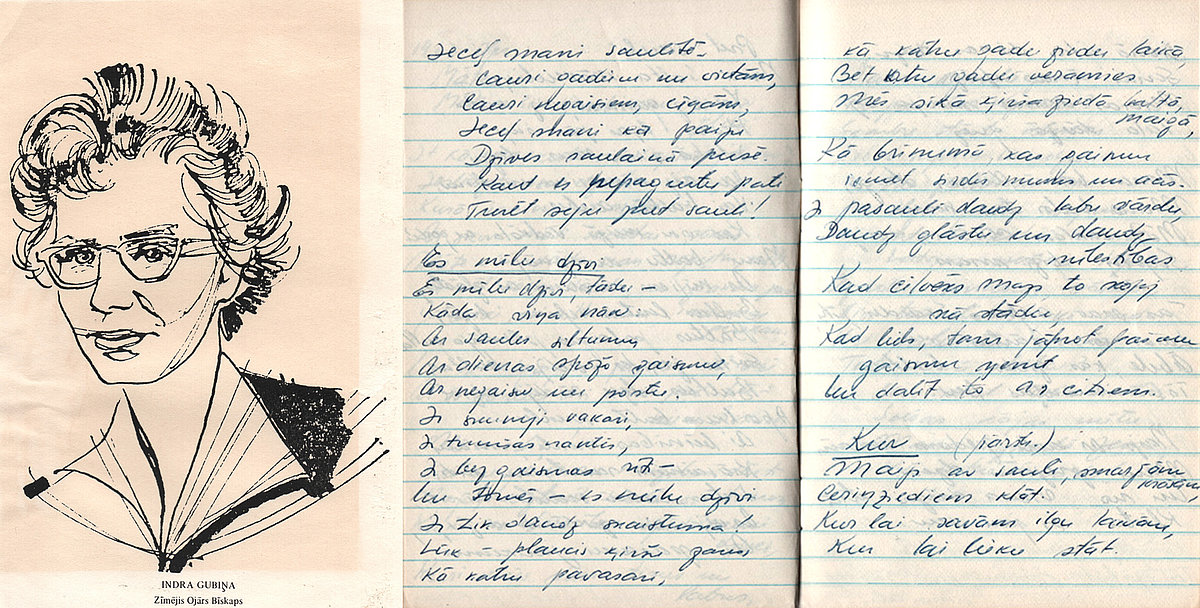 INDRA GUBIŅA
Zīmējis Ojārs Bīskaps
mani saulītē
Cauri gadiem un vietām,
Cauri negaisiem,
mani kā
Dzīves saulainā pusē.
Kaut es
Turēt seju pret sauli!
Es mīlu dzīvi
Es mīlu dzīvi, tādu –
Kāda viņa nāk:
Ar saules siltumu,
Ar dienas spožo gaismu,
Ar negaisu un postu.
Ir vakari,
Ir tumšas naktis,
Ir bez gaismas rīt –
Un tomēr – es mīlu dzīvi
Ir tik daudz skaistuma!
Lūk – plaucis ķiršu zars
Kā katru pavasari,
kā katru gadu ziedu laikā,
Bet katru gadu veramies
Mēs sīkā ķirša ziedā baltā,
maigā,
Kā brīnumā, kas gaismu
iemet sirdīs mums un acīs.
Ir pasaulē daudz labu vārdu,
Daudz glāstu un daudz
mīlestības
Kad cilvēks
kā stādu,
Kad līds, tam jāprot pašam
gaismu ņemt
Un dalīt to ar citiem.
Kur
Maijs ar sauli,
Ceriņziediem klāt.
Kur lai savām ilgu laivām,
Kur lai lieku stāt.